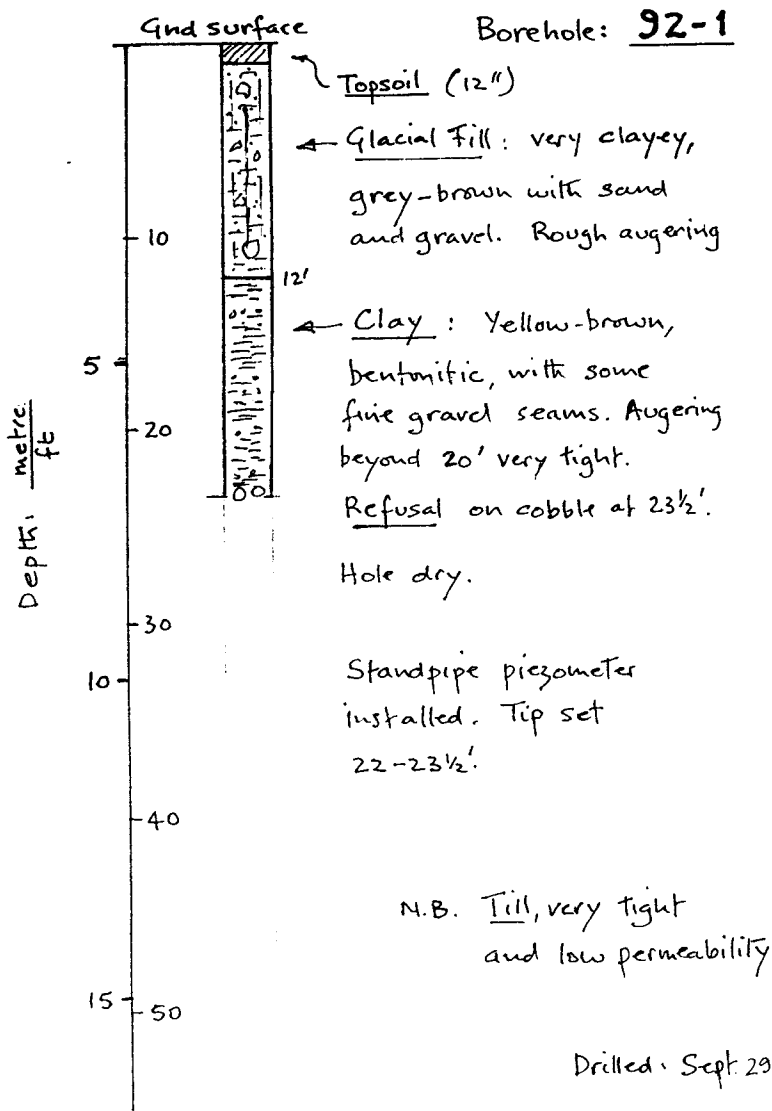 Gnd surface
Borehole: 92-1
Topsoil (12")
Glacial Till: very clayey,
grey-brown with sand
and gravel. Rough augering
10
12'
Clay: Yellow-brown,
bentonitic, with some
fine gravel seams. Augering
beyond 20' very tight.
Refusal on cobble at 23½'.
5
20
Depth: metre
ft
Hole dry.
30
10
Standpipe piezometer
installed. Tip set
22-23½'.
40
N.B. Till, very tight
and low permeability
15
50
Drilled: Sept. 29